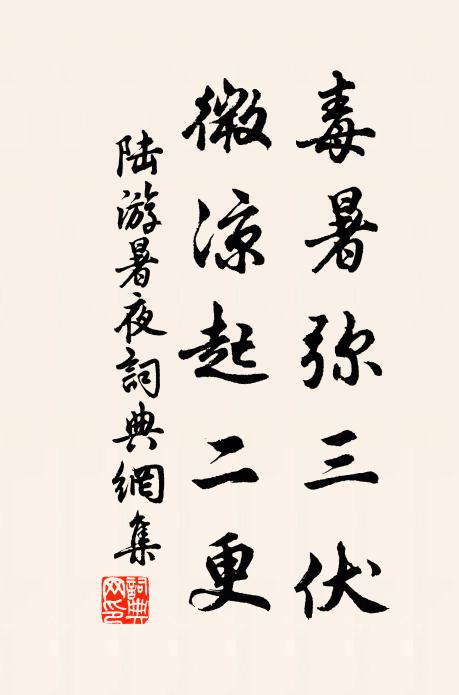 毒暑弥三伏
微凉起二更
陆游暑夜詞典網集
詞典网印